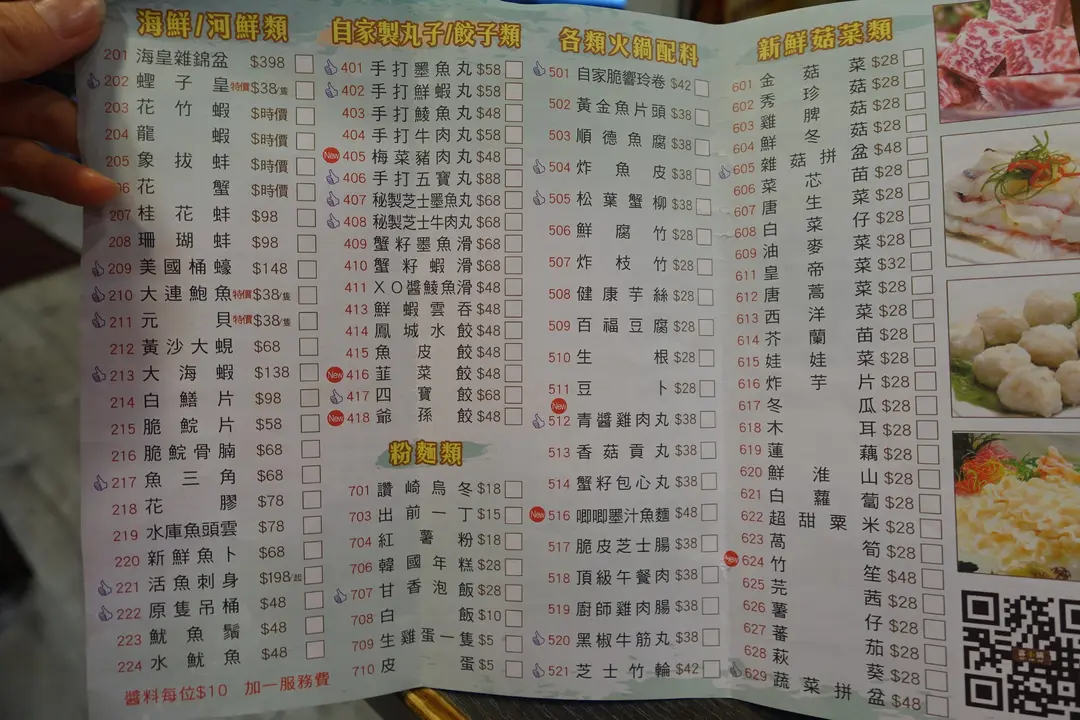 海鮮/河鮮類
201 海皇雜錦盆 $398
202 蟶子皇 特價$38/隻
203 花竹蝦 $時價
204 龍蝦 $時價
205 象拔蚌 $時價
06 花蟹 $時價
207 桂花蚌 $98
208 珊瑚蚌 $98
209 美國桶蠔 $148
210 大連鮑魚 特價$38/隻
211 元貝 特價$38/隻
212 黃沙大蜆 $68
213 大海蝦 $138
214 白鱔片 $98
215 脆鯇片 $58
216 脆鯇骨腩 $68
217 魚三角 $68
218 花膠 $78
219 水庫魚頭雲 $78
220 新鮮魚卜 $68
221 活魚刺身 $198/起
222 原隻吊桶 $48
223 魷魚鬚 $48
224 水魷魚 $48
醬料每位$10 加一服務費
自家製丸子/餃子類
401 手打墨魚丸 $58
402 手打鮮蝦丸 $58
403 手打鯪魚丸 $48
404 手打牛肉丸 $58
New 405 梅菜豬肉丸 $48
406 手打五寶丸 $88
407 秘製芝士墨魚丸 $68
408 秘製芝士牛肉丸 $68
409 蟹籽墨魚滑 $68
410 蟹籽蝦滑 $68
411 XO醬鯪魚滑 $48
413 鮮蝦雲吞 $48
414 鳳城水餃 $48
415 魚皮餃 $48
New 416 韮菜餃 $48
417 四寶餃 $68
New 418 爺孫餃 $48
粉麵類
701 讚崎烏冬 $18
703 出前一丁 $15
704 紅薯粉 $18
706 韓國年糕 $28
707 甘香泡飯 $28
708 白飯 $10
709 生雞蛋一隻 $5
710 皮蛋 $5
各類火鍋配料
501 自家脆響玲卷 $42
502 黃金魚片頭 $38
503 順德魚腐 $38
504 炸魚皮 $38
505 松葉蟹柳 $38
506 鮮腐竹 $28
507 炸枝竹 $28
508 健康芋絲 $28
509 百福豆腐 $28
510 生根 $28
511 豆卜 $28
New 512 青醬雞肉丸 $38
513 香菇貢丸 $38
514 蟹籽包心丸 $38
New 516 唧唧墨汁魚麵 $48
517 脆皮芝士腸 $38
518 頂級午餐肉 $38
519 廚師雞肉腸 $38
520 黑椒牛筋丸 $38
521 芝士竹輪 $42
新鮮菇菜類
601 金菇菜 $28
602 秀珍菇 $28
603 雞脾菇 $28
604 鮮冬菇 $28
605 雜菇拼盆 $48
606 菜芯苗 $28
607 唐生菜 $28
608 白菜仔 $28
609 油麥菜 $28
611 皇帝菜 $32
612 唐蒿菜 $28
613 西洋菜 $28
614 芥蘭苗 $28
615 娃娃菜 $28
616 炸芋片 $28
617 冬瓜 $28
618 木耳 $28
619 蓮藕 $28
620 鮮淮山 $28
621 白蘿蔔 $28
622 超甜粟米 $28
623 萵筍 $28
New 624 竹笙 $48
625 芫茜 $28
626 薯仔 $28
627 蕃茄 $28
628 萩葵 $28
629 蔬菜拼盆 $48